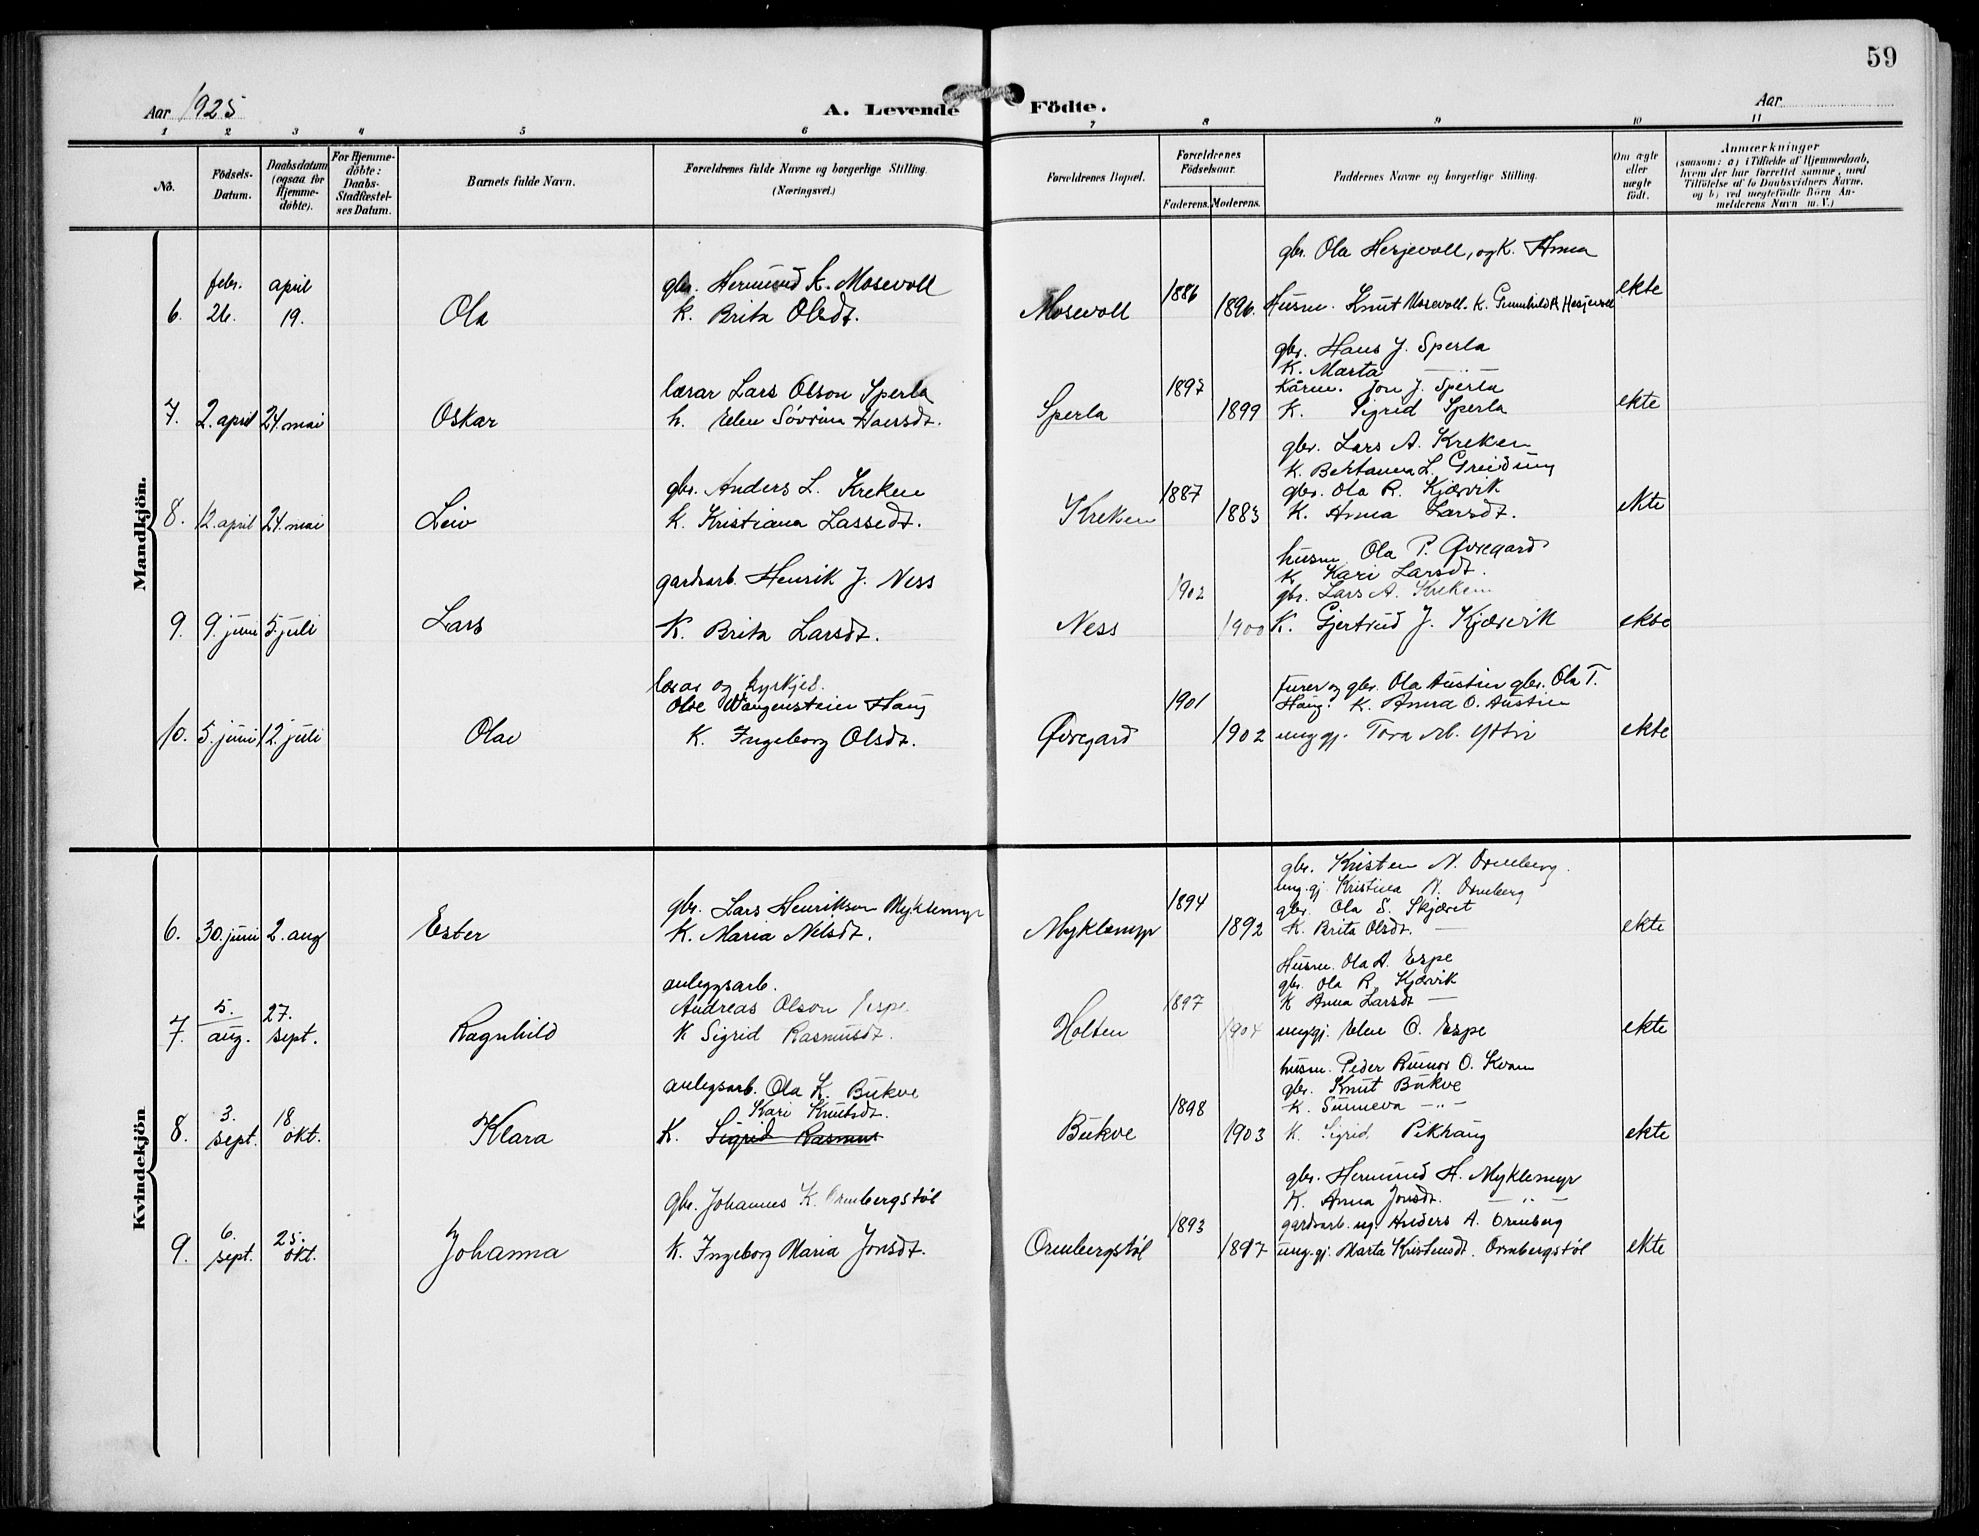 59
Aar 1925
A. Levende Födte.
Aar
1 2 3 4 5 6 7 8 9 10 11
Nö.
Födsels-Datum.
Daabsdatum (ogsaa for Hjemme-döbte).
For Hjemme-döbte: Daabs-Stadfæstel-ses Datum.
Barnets fulde Navn.
Forældrenes fulde Navne og borgerlige Stilling.
(Næringsvei.)
Forældrenes Bopæl.
Forældrenes Födselsaar.
Faderens. Moderens.
Faddernes Navne og borgerlige Stilling.
Om ægte eller uægte födt.
Anmærkninger
(saasom: a) i Tilfælde af Hjemmedaab, hvem der har forrettet samme, med Tilföielse af to Daabsvidners Navne, og b) ved uegtefödte Börn An-melderens Navn m. V.)
Mandkjön.
gbr. Ola Hesjevoll, og K. Anna
febr. april gbr. Hermund K. Mosevoll 1886
6. 26. 19. Ola K. Brita Olsdt. Mosevoll 1896. Husm. Knut Mosevoll. K. Gunnhild A Hesjevoll ekte
gbr. Hans J. Sperla
K. Marta — " —
lærar Lars Olson Sperla 1897 Kårm. Jon J. Sperla
7. 2. april 24. mai Oskar h. Elen Sövrina Hansdt. Sperla 1899 K. Sigrid Sperla ekte
gbr. Lars A. Kreken
K. Bertanna L. Greidung
gbr. Anders L. Kreken 1887 gbr. Ola R. Kjærvik
8. 12. april 24. mai Leiv K. Kristiana Lassedt. Kreken 1883 K. Anna Larsdt. ekte
husm. Ola P. Øvregard
K. Kari Larsdt.
gardsarb. Henrik J. Ness 1902 gbr. Lars A. Kreken
9. 9. juni 5. juli Lars K. Brita Larsdt. Ness 1900 K. Gjertrud J. Kjærvik ekte
lærar og kyrkjes. Furer og gbr. Ola Austin gbr. Ola T.
Olve Wangensteen Haug 1901 Haug. K. Anna O. Austin
10. 5. juni 12. juli Olav K. Ingeborg Olsdt. Øvregard 1902 ung gj. Tora Yttri ekte
Kvindekjön
gbr. Kristen N. Ormberg.
ung. gj Kristina N. Ormberg
gbr. Lars Henrikson Myklemyr 1894 gbr. Ola S. Skjæret
6. 30. juni 2. aug Ester K. Maria Nilsdt. Myklemyr 1892 K. Brita Olsdt. — ekte
Husm. Ola A. Espe
anleggsarb. gbr. Ola R. Kjærvik
5. 27. Andreas Olson Espe 1897 K Anna Larsdt —
7. aug. sept. Ragnhild K Sigrid Rasmusdt. Holten 1904 ung gj. Elen O. Espe ekte
husm. Peder Rumor O. Kvam
anlegsarb. Ola K. Bukve gbr. Knut Bukve
3. 18 Kari Knutsdt. 1898 K. Sunneva — " —
8. sept. okt. Klara K. Sigrid Rasmus Bukve 1903 K. Sigrid Pikhaug ekte
gbr. Hermund H. Myklemyr
gbr. Johannes K. Ormbergstøl K. Anna Jonsdt. — " —
6. 25. 1893 gardsarb. ug. Anders A. Ormberg
9. sept. okt. Johanna K. Ingeborg Maria Jonsdt. Ormbergstøl 1897 ung.gj. Marta Kristensdt. Ormbergstøl ekte